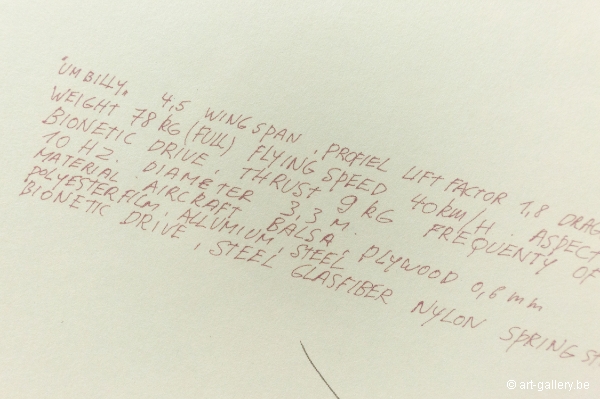 "UMBILLY" 4,5 WINGSPAN. PROFIEL LIFT FACTOR 1,8 DRAG
WEIGHT 78 KG (FULL) FLYING SPEED 40 KM/H. ASPECT
BIONETIC DRIVE. THRUST 9 KG FREQUENTY OF
10 HZ. DIAMETER 3,3 M.
MATERIAL AIRCRAFT BALSA, PLYWOOD 0,6 mm
POLYESTERFILM, ALLUMIUM, STEEL
BIONETIC DRIVE, STEEL GLASFIBER NYLON SPRING
© art-gallery.be